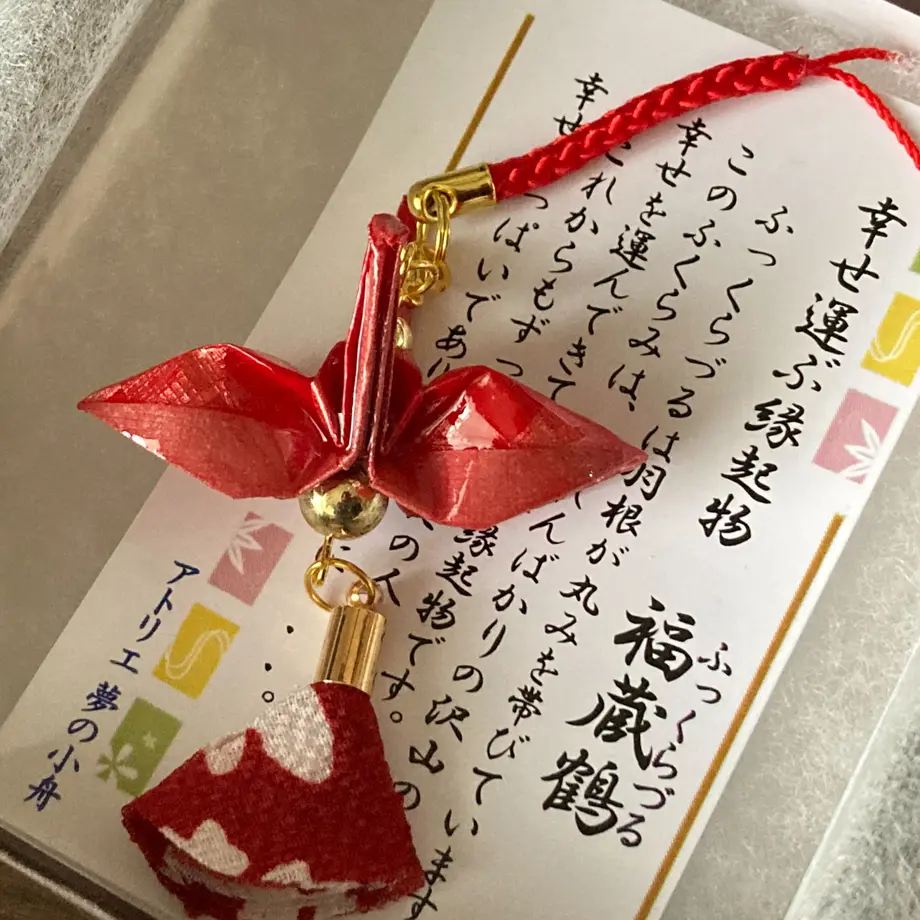 幸せ運ぶ縁起物
ふっくらづる
福蔵鶴
ふっくらづるは羽根が丸みを帯びています
このふくらみは、んばかりの沢山の
幸せを運んできて縁起物です。
これからもずっの人
幸せっぱいであ・・・。
アトリエ 夢の小舟